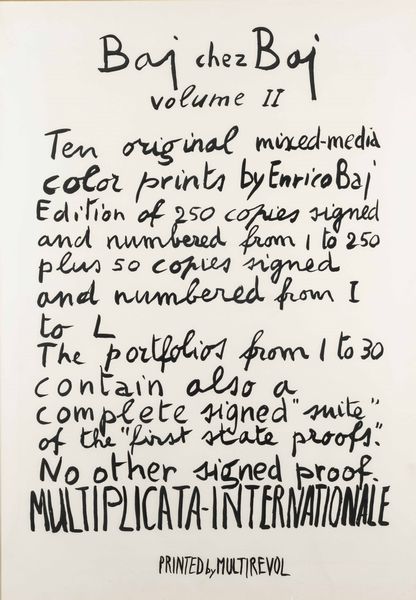 Baj chez Baj
volume II
Ten original mixed-media
color prints by Enrico Baj
Edition of 250 copies signed
and numbered from 1 to 250
plus 50 copies signed
and numbered from I
to L
The portfolios from 1 to 30
contain also a
complete signed "suite"
of the "first state proofs".
No other signed proof.
MULTIPLICATA-INTERNATIONALE
PRINTED by MULTIREVOL